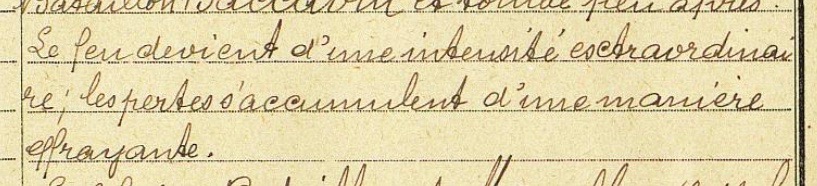 Bataillon et tombe peu après.
Le feu devient d'une intensité extraordinai
re; les pertes s'accumulent d'une manière
effrayante.